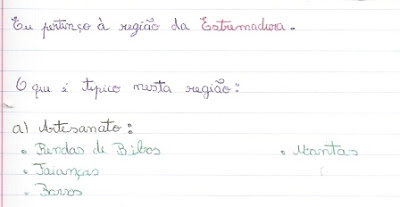 Eu pertenço à região da Estremadura.
O que é típico nesta região:
a) Artesanato:
• Rendas de Bilos • Mantas
• Faianças
• Barros